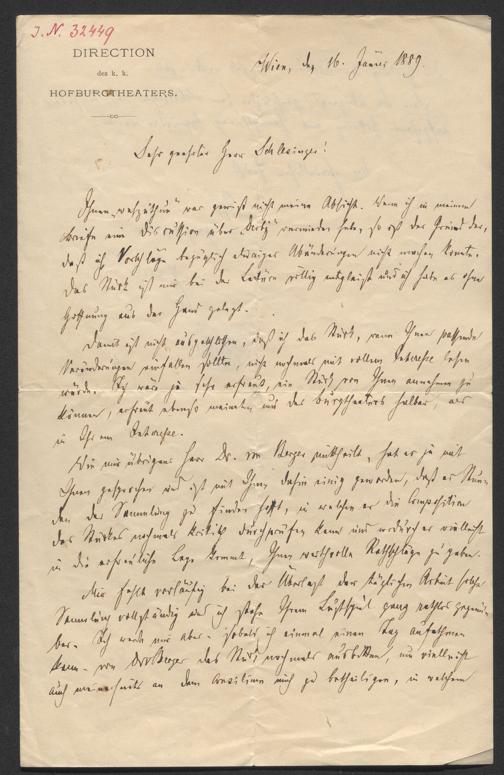 J. N. 32449
DIRECTION
des k. k.
HOFBURGTHEATERS.
Wien, den 16. Jänner 1889.
Sehr geehrter Herr Schlesinger!
Ihnen „wehzuthun“ war gewiß nicht meine Absicht. Wenn ich in meinem
Briefe eine Discussion über vermieden habe, so ist der Grund der,
daß ich Vorschläge bezüglich etwaiger Abänderungen nicht machen konnte.
Das Stück ist mir bei der Lectüre völlig und ich habe es ohne
Hoffnung aus der Hand gelegt.
Damit ist nicht ausgeschlossen, daß ich das Stück, wenn Ihnen passende
Veränderungen einfallen sollten, nicht nochmals mit vollem Interesse lesen
würde. Ich wäre ja sehr erfreut, ein Stück von Ihnen annehmen zu
können, erfreut ebenso und des Burgtheaters halber, als
in Ihrem Interesse.
Wie mir übrigens Herr Dr. von Berger mittheilt, hat er ja mit
Ihnen gesprochen und ist mit Ihnen dahin einig geworden, daß er Stun-
den der Sammlung zu finden hofft, in welchen er die Composition
des Stückes nochmals kritisch durchprüfen kann und wodurch er vielleicht
in die erfreuliche Lage kommt, Ihnen werthvolle Rathschläge zu geben.
Mir fehlt vorläufig bei der Überlast der täglichen Arbeit solche
Sammlung vollständig und ich stehe Ihrem Lustspiel ganz rathlos gegenü-
ber. Ich werde mir aber - sobald ich einmal einen Tag aufathmen
kann - von Dr. Berger das Stück nochmals ausbitten, um vielleicht
auch meinerseits an dem Consilium mich zu betheiligen, in welchem